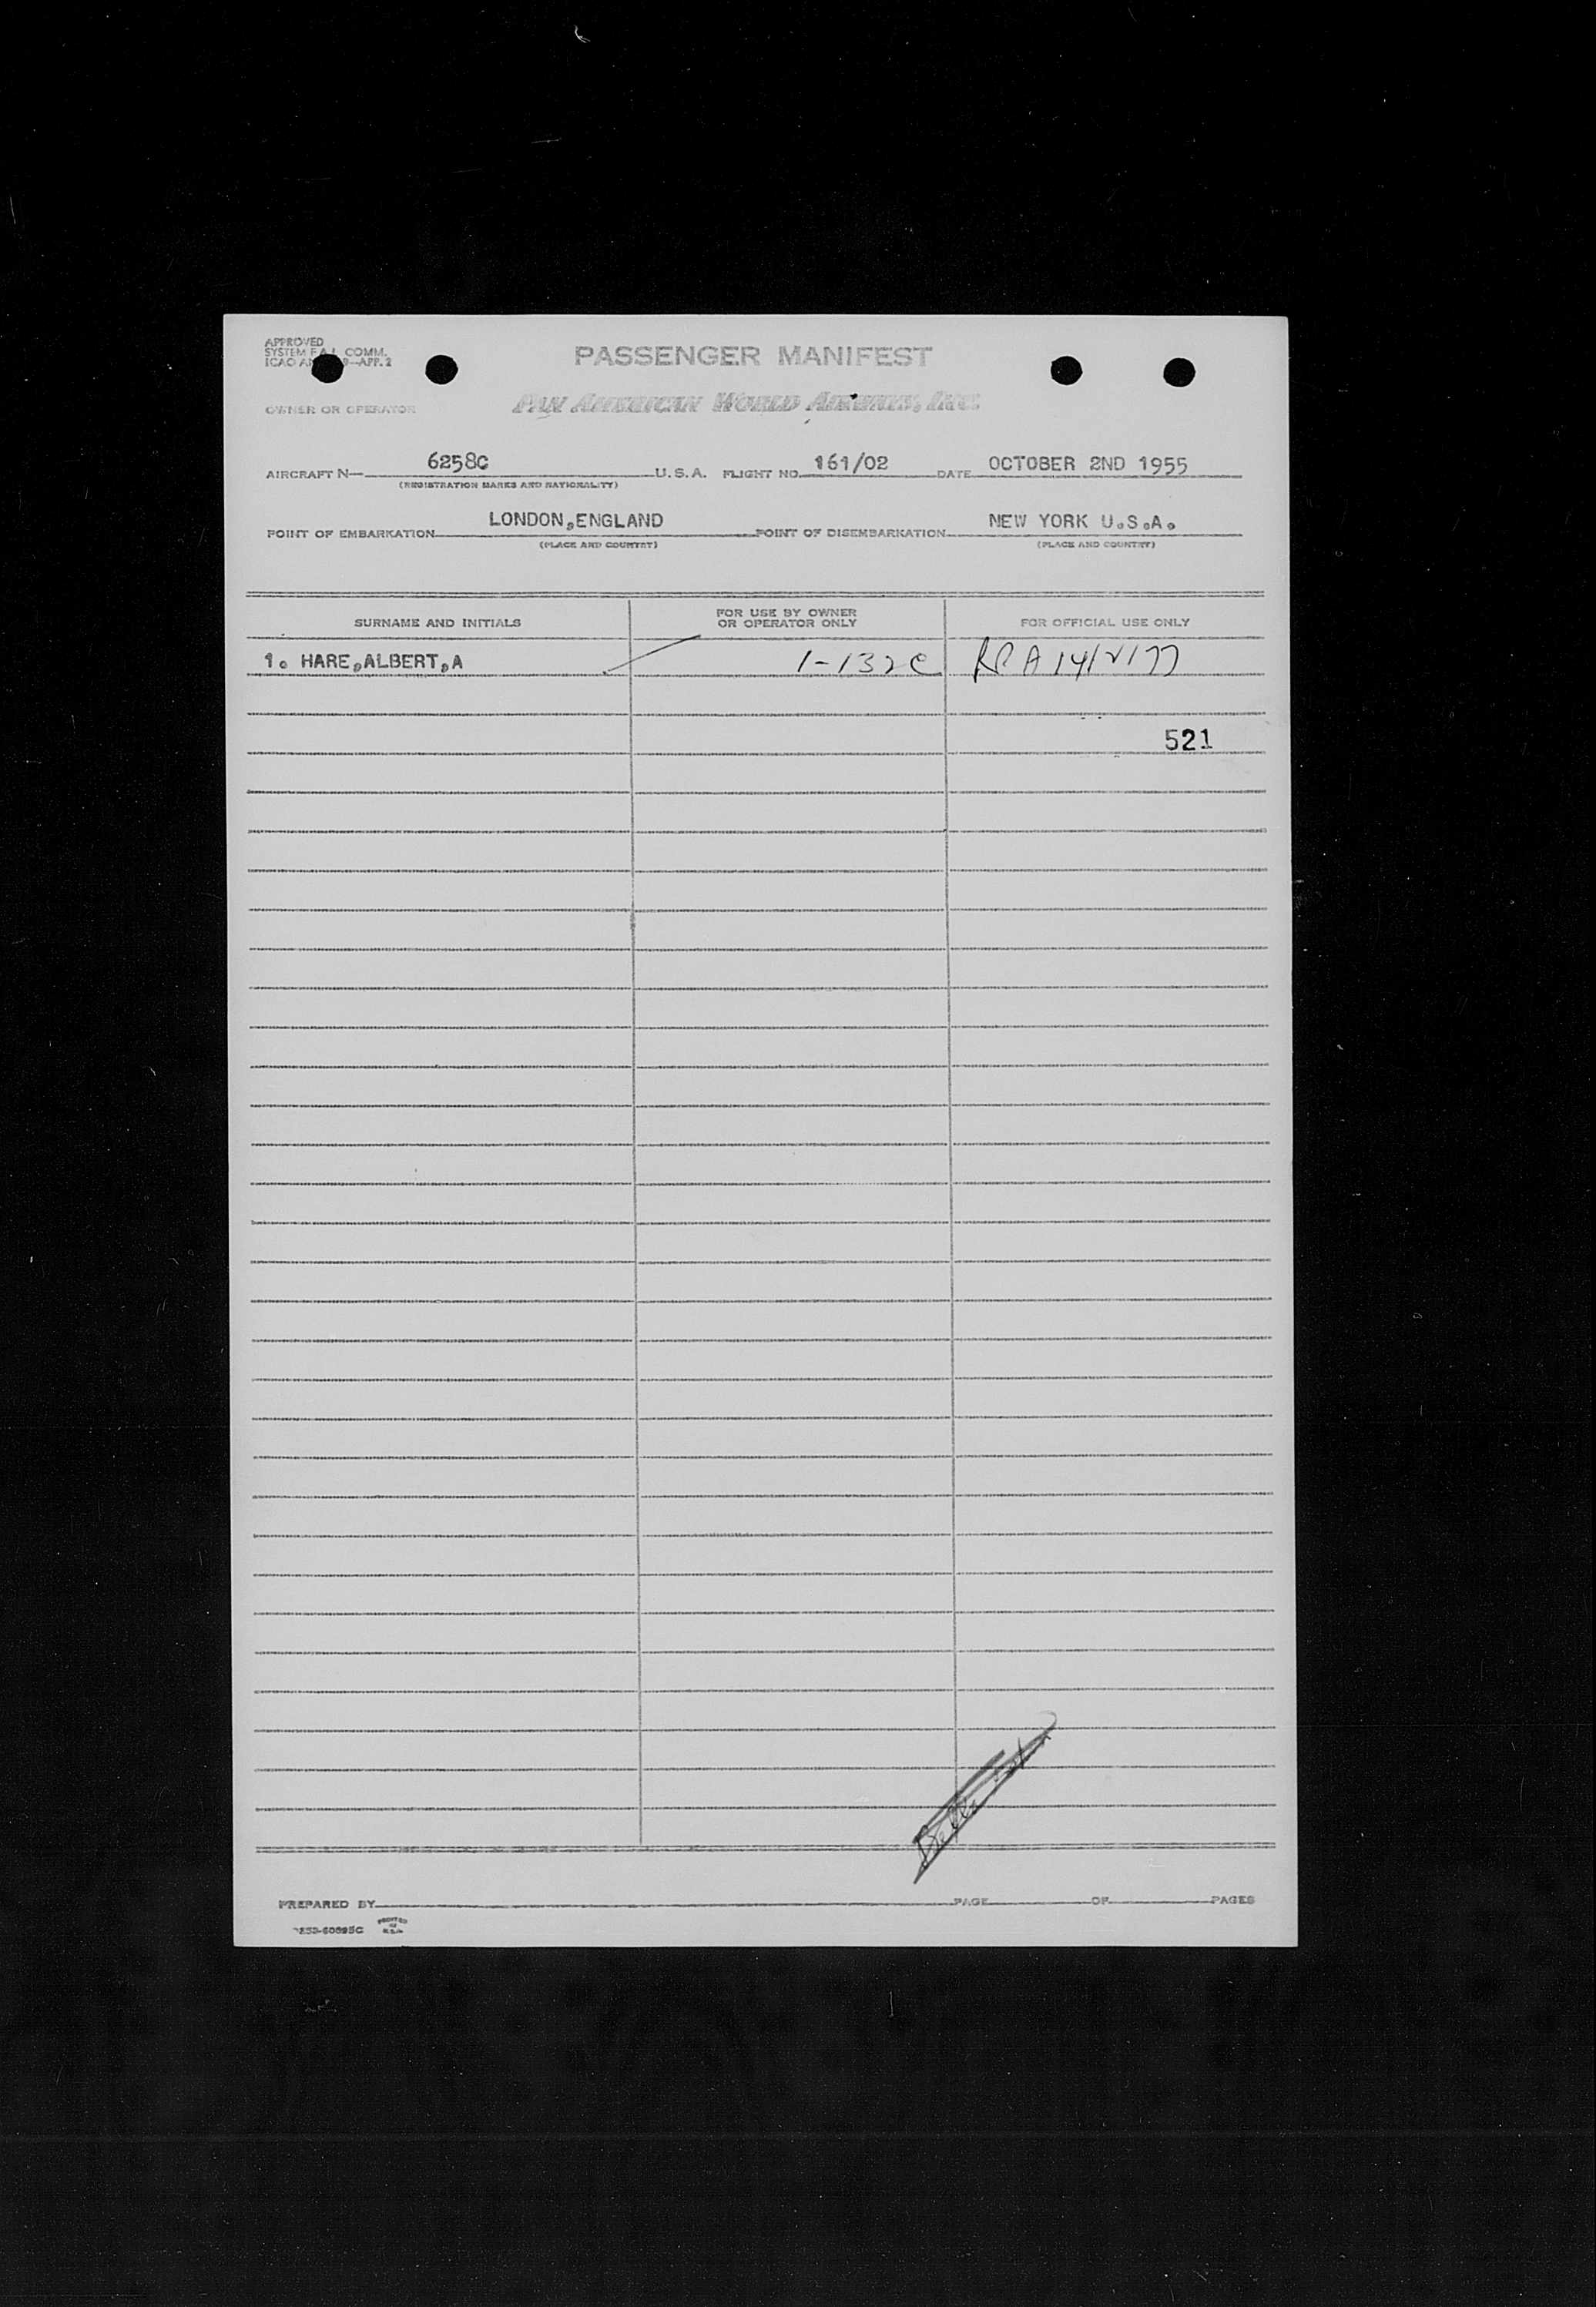 APPROVED
SYSTEM F.A.L. COMM.
ICAO 9—APP. 2
PASSENGER MANIFEST
OWNER OR OPERATOR PAN AMERICAN WORLD AIRWAYS, INC.
AIRCRAFT N— 6258C U.S.A. FLIGHT NO. 161/02 DATE OCTOBER 2ND 1955
(REGISTRATION MARKS AND NATIONALITY)
POINT OF EMBARKATION LONDON,ENGLAND POINT OF DISEMBARKATION NEW YORK U.S.A.
(PLACE AND COUNTRY) (PLACE AND COUNTRY)
SURNAME AND INITIALS FOR USE BY OWNER OR OPERATOR ONLY FOR OFFICIAL USE ONLY
1. HARE,ALBERT,A 1-132C
521
PREPARED BY PAGE OF PAGES
PRINTED
IN
U.S.A.